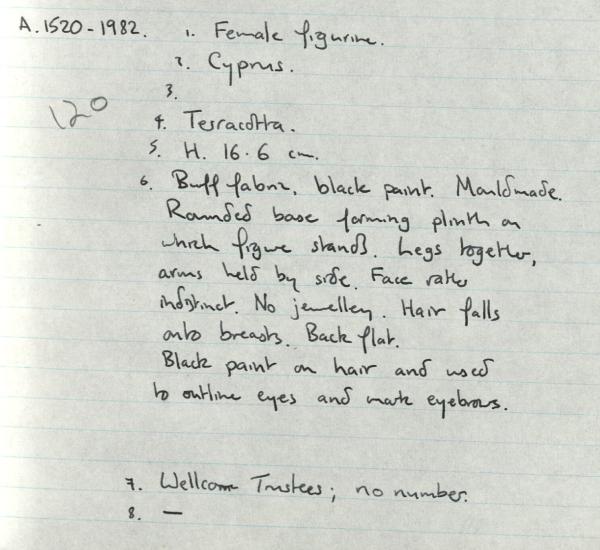 A.1520-1982. 1. Female figurine.
2. Cyprus.
3.
120
4. Terracotta.
5. H. 16.6 cm.
6. Buff fabric, black paint. Mouldmade.
Rounded base forming plinth on
which figure stands. Legs together,
arms held by side. Face rather
indistinct. No jewellery. Hair falls
onto breasts. Back flat.
Black paint on hair and used
to outline eyes and mark eyebrows.
7. Wellcome Trustees; no number.
8. —